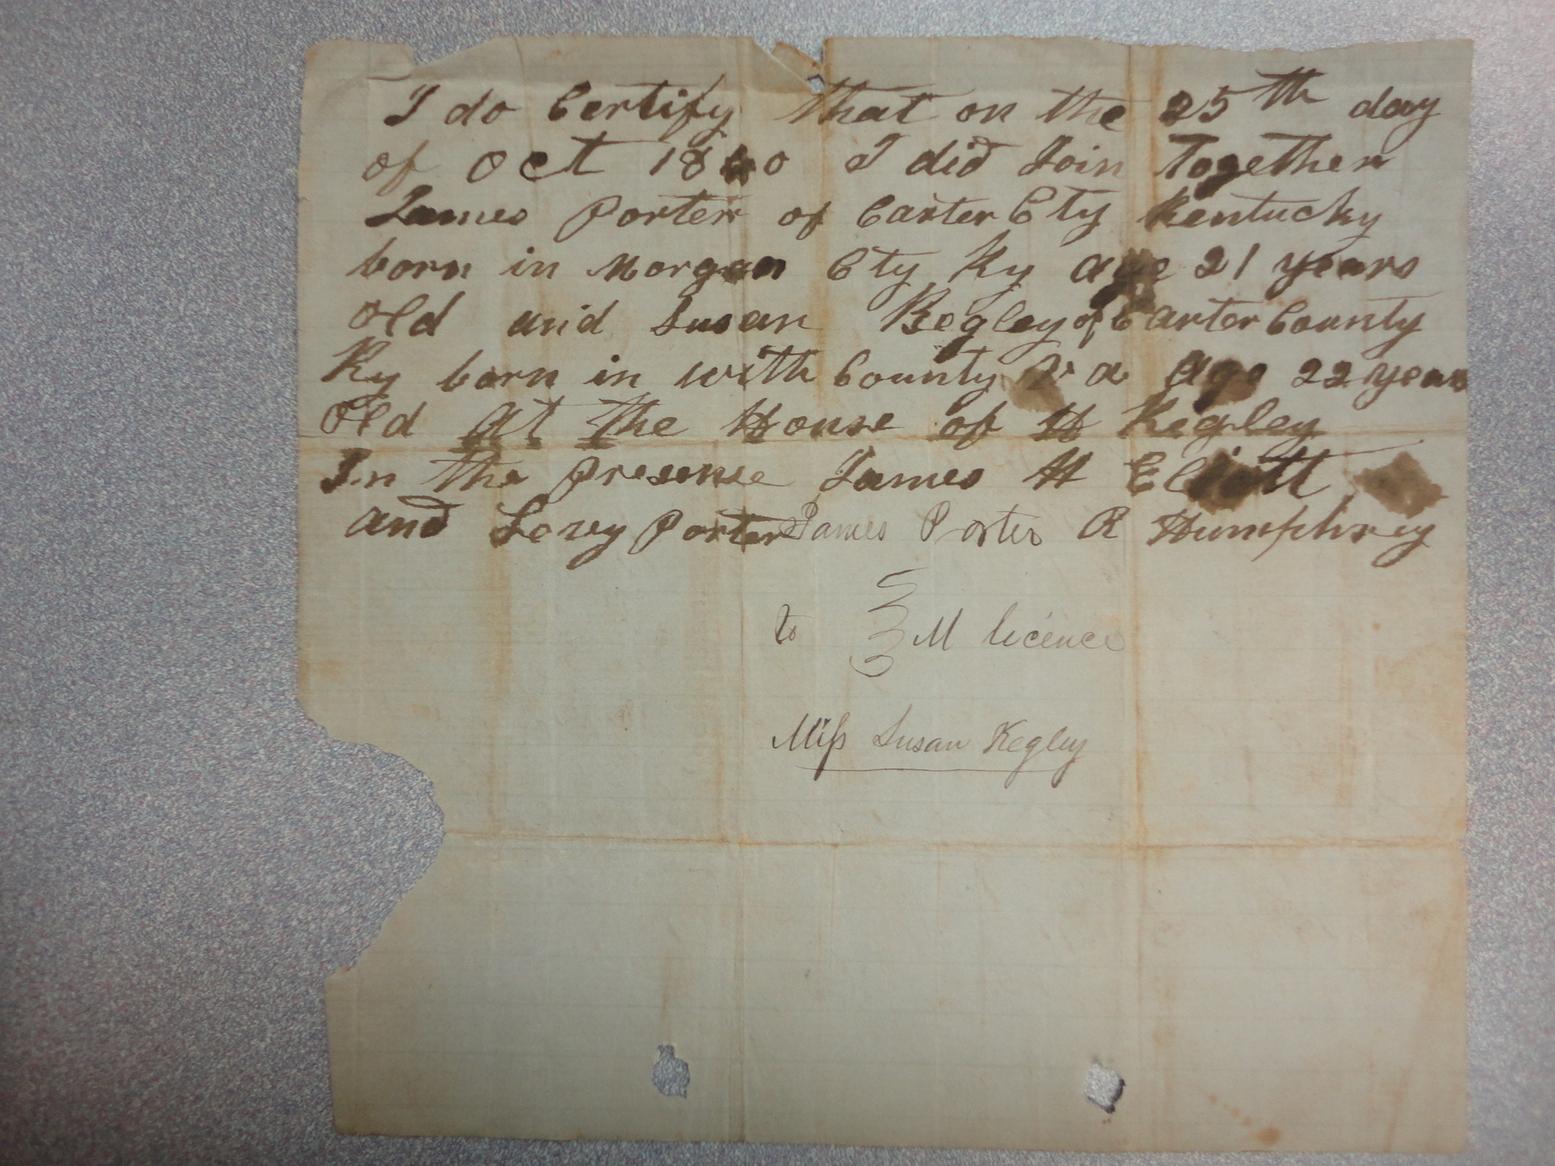 I do Certify that on the 25th day
of Oct 18 I did Join Together
James Porter of Carter Cty Kentucky
born in Morgan Cty Ky age 21 years
old and Susan Kegley of Carter County
Ky born in with County Va age 22 years
old At the House of H Kegley
In the presense James H Eliott
and Levy Porter James Porter R Humphrey
to M licence
Miss Susan Kegley